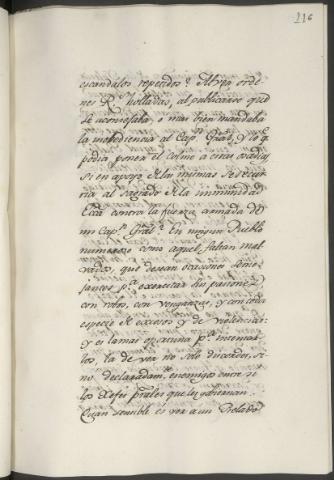 216
escandalos repetidos? Alvya, orde-
nes R.s holladas, al publicarse que
se aconsejaba, o mas bien mandaba
la inobediencia al Cap.n Gral, y se
podia poner el colmo a otras osadias,
si en apoyo de las mismas se recur-
ria al sagrado de la inmunidad
Ecca contra la fuerza armada de
un Cap.n Gral? En ningun Pueblo
numeroso como aquel, faltan mal-
vados, que desean ocasiones seme-
jantes p.a exercitar sus pasiones
con robos, con venganzas, y con toda
especie de excesos y de violencias:
y es la mas oportuna p.a intentar-
los, la de ver no solo discordes, si-
no declaradam.te enemigos entre si
los Xefes prales que les gobiernan.
Cuan sensible es ver a un Prelado